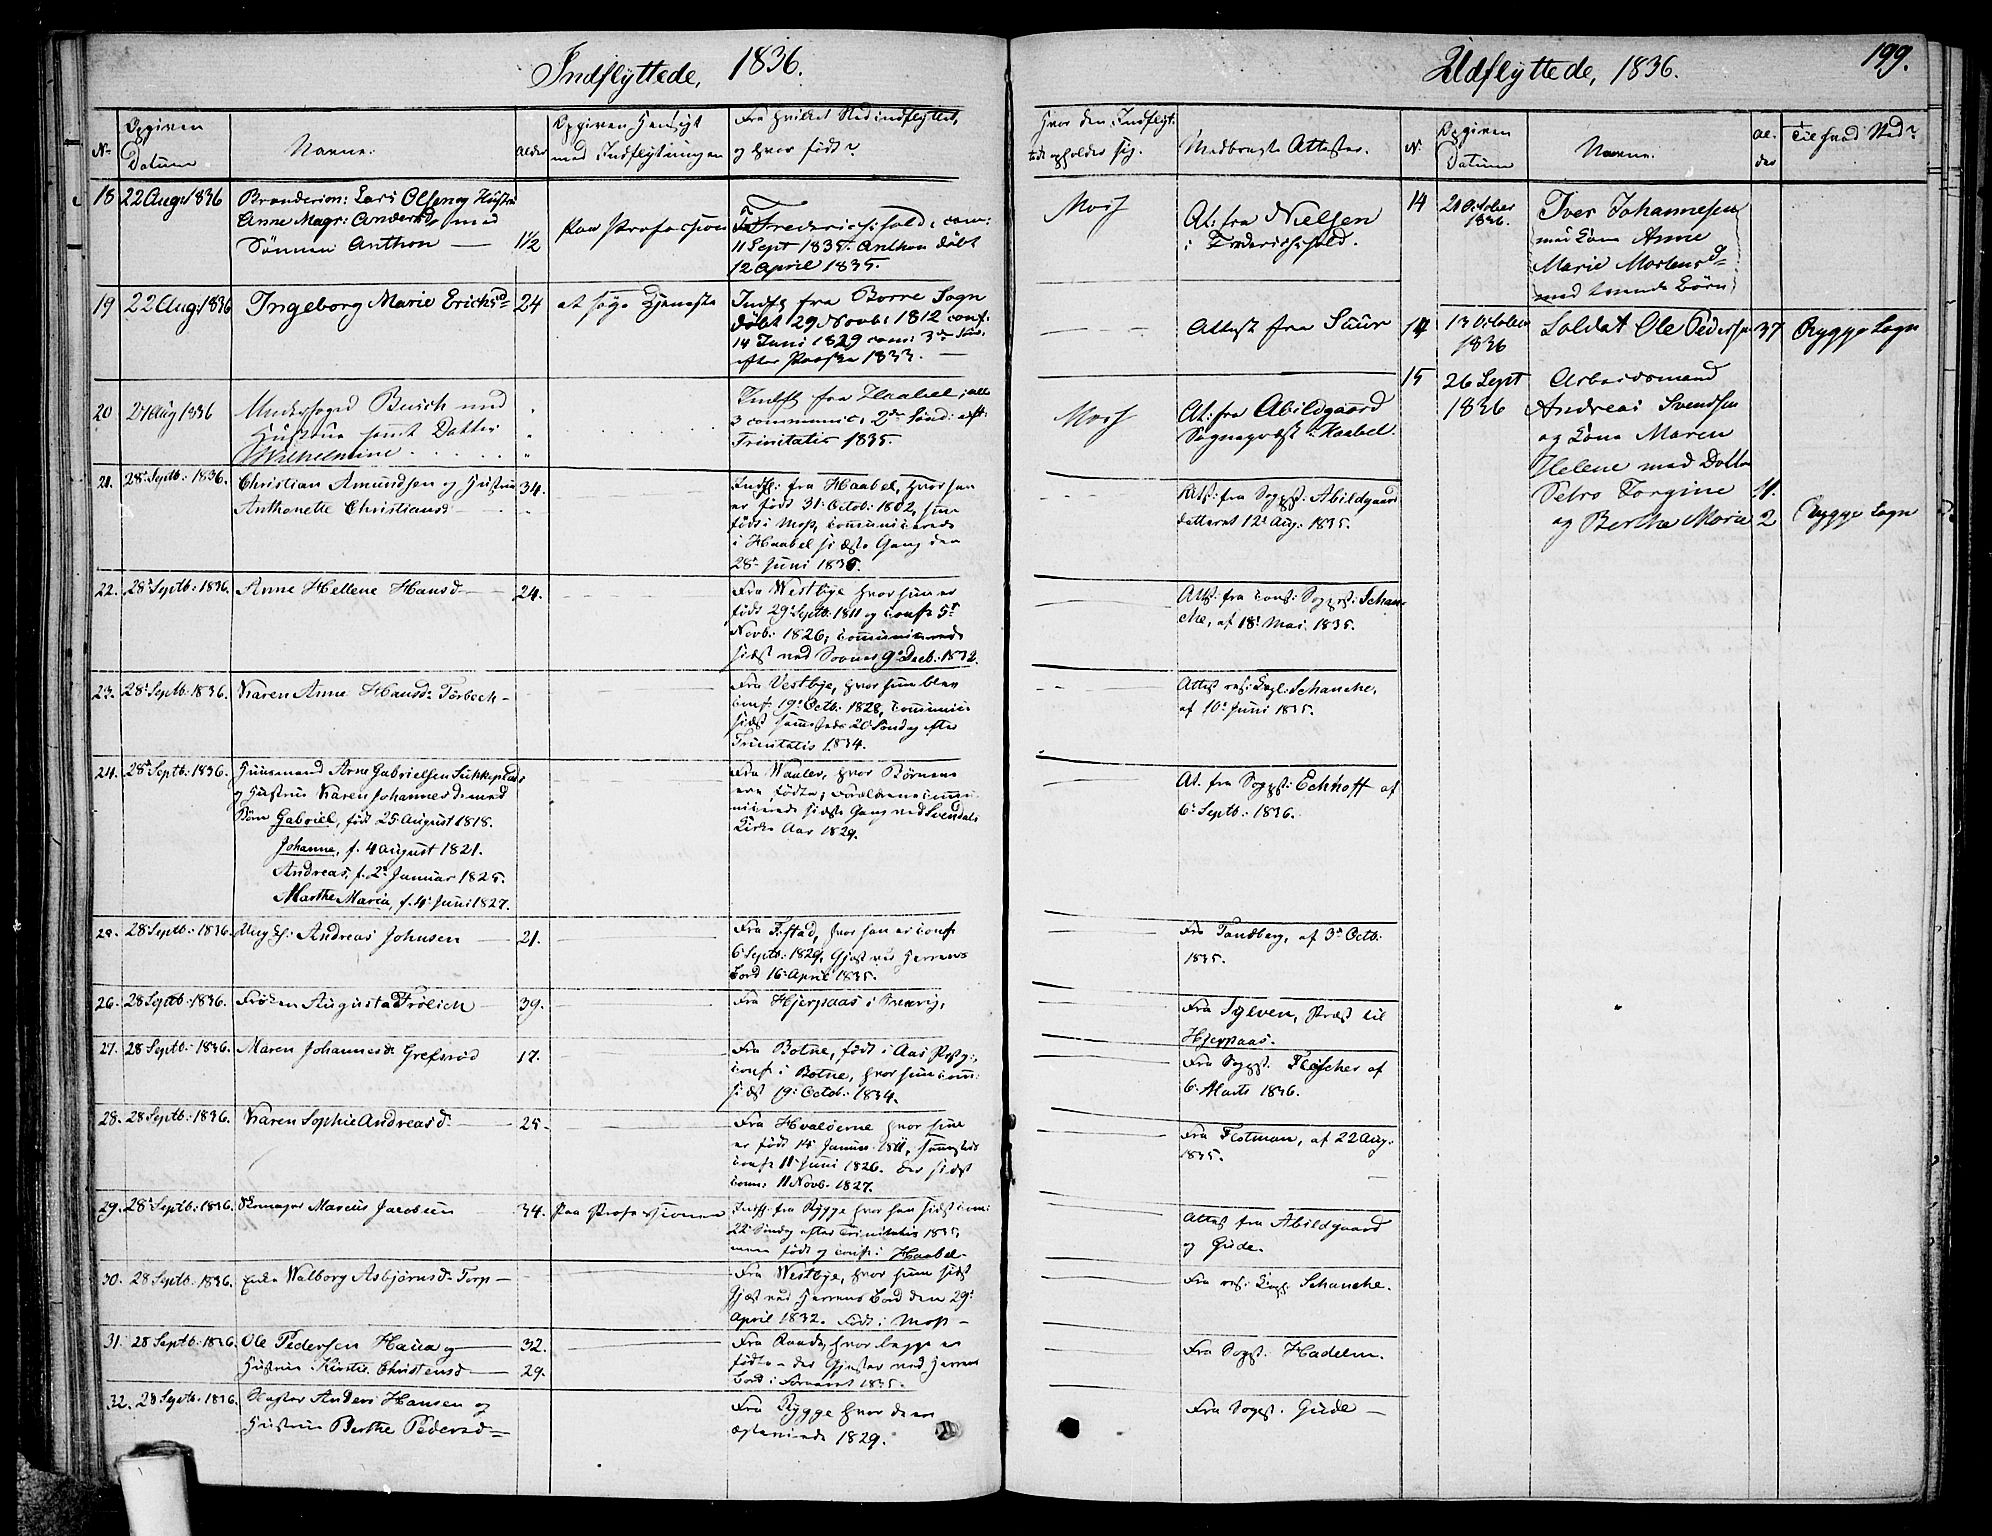 Indflyttede, 1836.
No
Opgiven
Datum
Navne.
Alder
Opgiven Hensigt
med Indflytningen
Fra hvilket Sted indflyttet,
og hvor født?
18 22 Aug: 1836 Brænderim: Lars Olsen og Hustru
Anne Magr: Andersd. med
Sønnen Anthon — 1½
paa Profession
Fra Friderichshald, com:
11 Sept 1835. Anthon døbt
12 April 1835.
19 22 Aug: 1836 Ingeborg Marie Erichsd. 24 at søge Tjeneste
Indfl fra Borre Sogn
døbt 29 Novb: 1812 conf:
14 Juni 1829 com: 3de Sønd:
efter Paaske 1833. —
20 Aug 1836 Busch med
Hustrue samt Datter
Wilhelmine
Indfl fra Haabel; alle
3 communic: 2den Sønd: eft:
Trinitatis 1835.
21. 28 Septb: 1836. Christian Amundsen og Hustrue 34.
Anthonette Christiansd
Indfl: fra Haabel, hvor han
er født 31 Octob: 1802, hun
født i Moss, communicerede
i Haabel sidste Gang den
28 Juni 1835.
22. 28 Septb: 1836. Anne Hellene Hansd. 24.
Fra Westbye hvor hun er
født 29 Septb: 1811 og conf 5
Novb: 1826; communicerede
sidst ved Sovner 9 Decb: 1832.
23. 28 Septb: 1836. Karen Anne Hansd. Torbech
Fra Vestbye, hvor hun blev
conf. 19 Octb: 1828, communic:
sidst sammesteds 20 Søndag efter
Trinitatis 1834.
24. 28 Septb: 1836. Huusmand Arne Gabrielsen
og Hustrue Karen Johannesd. med
Børn Gabriel, født 25 August 1818.
Johanne, f. 4 August 1821.
Andreas, f. 2 Januar 1825.
Marthe Maria, f. 4 Juni 1827.
Fra Waaler, hvor Børnene
ere fødte; Forældrene commu-
nicerede sidste Gang ved Svendals
Kirke Aar 1829.
28 Septb: 1836. Ung K: Andreas Johnsen 21.
Fra F:stad, hvor han er conf
6 Septb: 1829, Gjæst ved Herrens
Bord 16 April 1835.
26. 28 Septb: 1836. Frøken Augusta Frölich 39.
Fra Hjerpaas i Sverrig,
27. 28 Septb: 1836. Maren Johannesd. Grefsrød 17.
Fra Botne, født i Aas Præstg:,
conf i Botne, hvor hun com:
sidst 19 Octob: 1834.
28. 28 Septb: 1836. Karen Sophie Andreasd. 25.
Fra Hvaløerne hvor hun
er født 14 Januar 1811, sammesteds
conf 11 Juni 1826. Der sidst
com: 11 Novb. 1827.
29. 28 Septb: 1836. Skomager Marcus Jacobsen 34. paa Professionen
Indfl: fra Rygge hvor han sidst com:
22 Søndag efter Trinitatis 1835,
men født og conf: i Haabel.
30. 28 Septb: 1836. Enke Walborg Asbjørnsd. Torp
Fra Westbye, hvor hun sidst
Gjæst ved Herrens Bord den 29
April 1832. Født i Moss —
31. 28 Septb: 1836. Ole Pedersen Haua og 32.
Hustrue Kirstie Christensd 29.
Fra Raade, hvor begge er
fødte — der Gjester ved Herrens
Bord i Foraaret 1835.
32. 28 Septb: 1836. Anders Hansen og
Hustrue Berthe Pedersd.
Fra Rygge hvor de er
1829.
Udflyttede, 1836.
199.
Hvor den Indflyt-
tede opholder sig.
Medbragte Attester.
N.
Opgiven
Datum
Navne.
Al-
der
Til hvad Sted?
Moss
At: fra Nielsen
i Friderichshald.
Attest fra Suur
Moss
At: fra Abildgaard
Sognepræst i Haabel.
Att: fra Sogpr: Abildgaard
dateret 12 Aug: 1835.
Att: fra const: Sogpr: Schan-
che, af 18 Mai 1835.
Attest res: Capl: Schanche,
af 10 Juni 1835.
At. fra Sogpr: Echhoff af
6 Septb: 1836.
Fra Tandberg, af 3 Octb:
1835.
Fra Sylven, Præst til
Hjerpaas.
Fra Sogpr. Fleischer af
6 Marts 1836.
Fra Flotman, af 22 Aug.
1835.
Attest fra Abildgaard
og Gude.
Fra res: Capl: Schanche.
Fra Sogpr. Hadeln.
Fra Sogpr. Gude —
14 21 October
1836.
Iver Johannesen
med Kone Anne
Marie Mortensd.
med tvende Børn
14 13 October
1836
Soldat Ole Pedersen 37 Rygge Sogn
15 26 Sept
1836
Arbeidsmand
Andreas Svendsen
og Kone Maren
Helene med Dotter
Petro Jorgine 11.
og Berthe Marie 2 Rygge Sogn